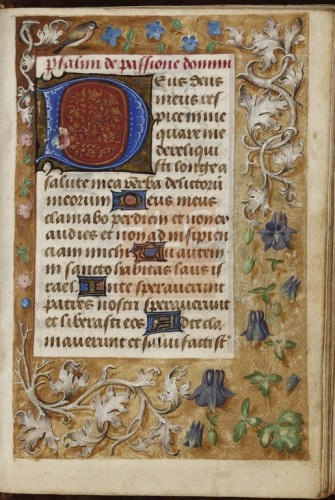 psalmi de passione domini
Deus deus
meus res
pice in me
quare me
dereliqui
sti longe a
salute mea verba delictoru
meorum Deus meus
clamabo per diem et non ex
audies et non ad insipien
ciam michi Tu autem
in sancto habitas laus is
rael In te speraverunt
patres nostri speraverunt
et liberasti eos Ad te cla
maverunt et salvi facti st